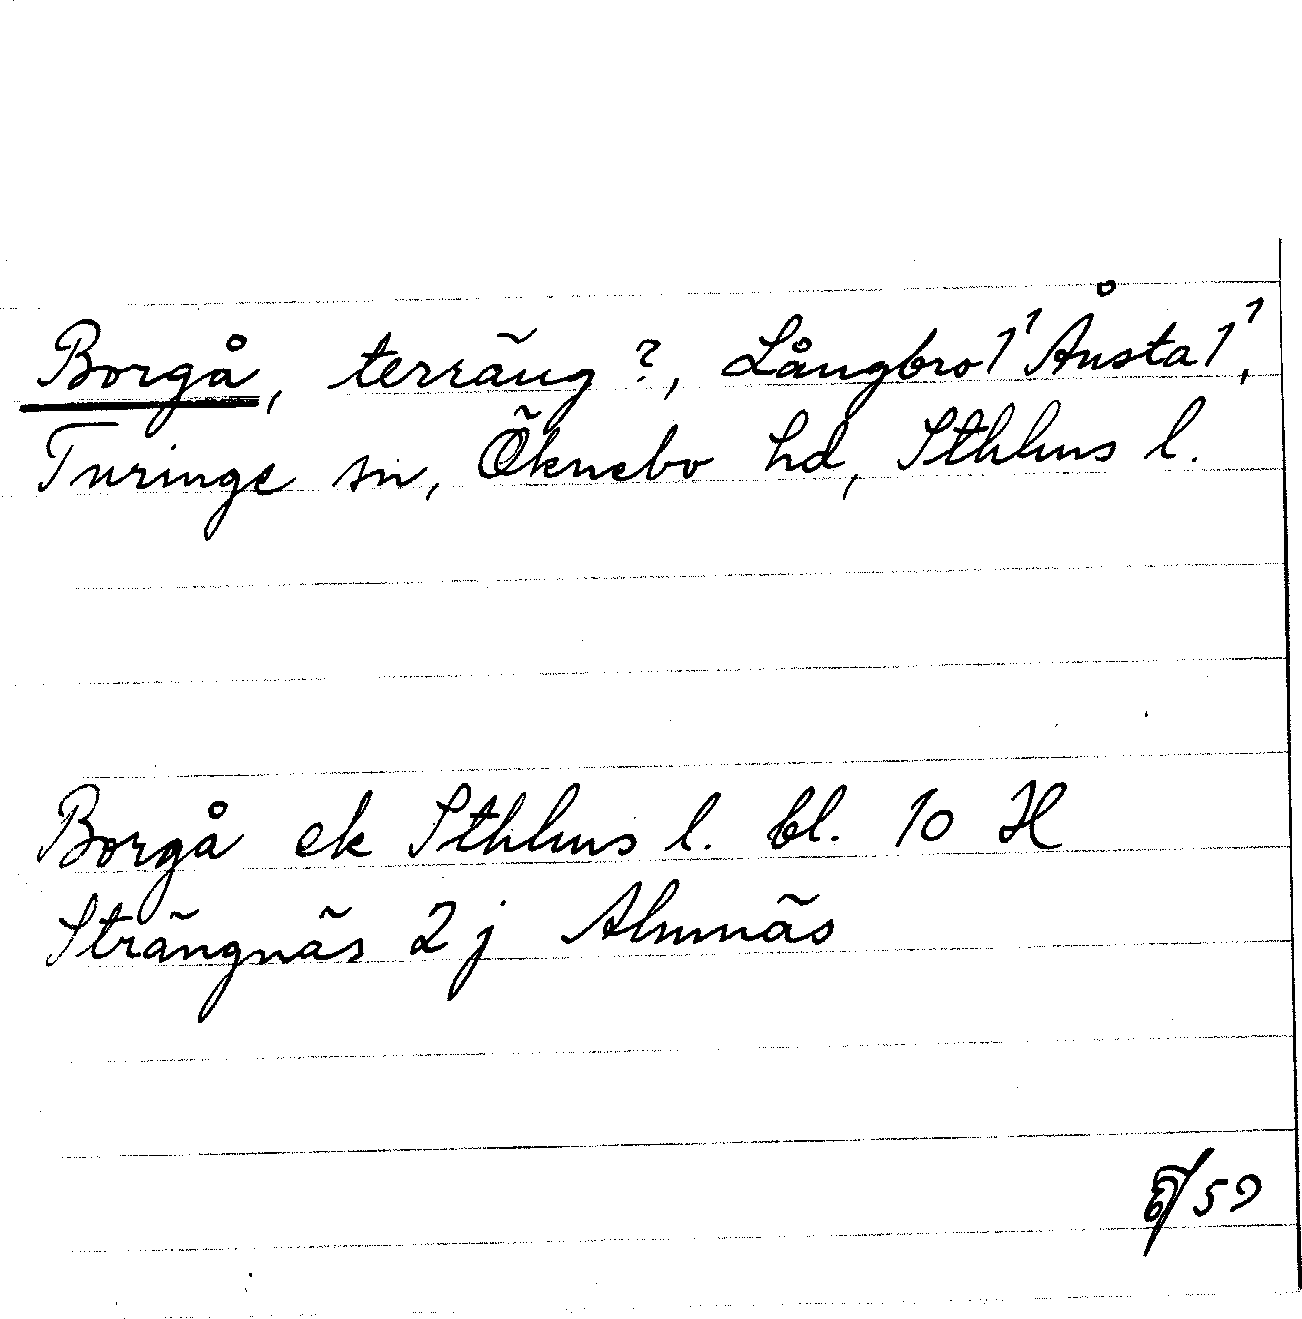 Borgå, terräng?, Långbro 1¹ Ånsta 1¹,
Turinge sn, Öknebo hd, Sthlms l.
Borgå ek Sthlms l. bl. 10 H
Strängnäs 2 j Almnäs
59